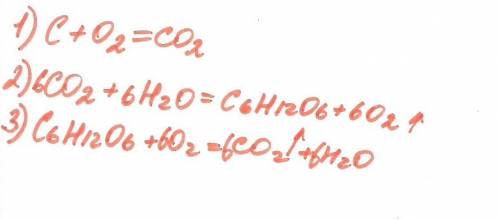 1) C + O₂ = CO₂
2) 6CO₂ + 6H₂O = C₆H₁₂O₆ + 6O₂↑
3) C₆H₁₂O₆ + 6O₂ = 6CO₂↑ + 6H₂O